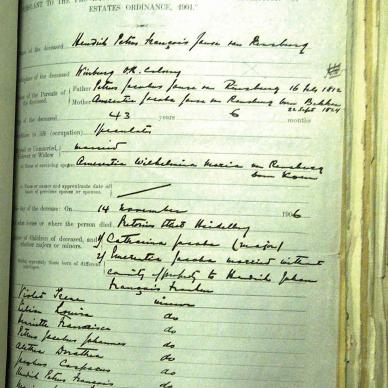 ESTATES ORDINANCE, 1901."
of the deceased Hendrik Petrus François Janse van Rensburg
Birthplace of the deceased Winburg O.R. Colony
Names of the Parents of the deceased. Father Petrus Jacobus Janse van Rensburg 16 July 1812
Mother Anserina Jacoba Janse van Rensburg born Bekker
22 Sept 1824
of the deceased 43 years 6 months
in life (occupation). Speculator
Married or Unmarried, Widower or Widow married
Name of surviving spouse Wilhelmina Maria van Rensburg
born
Name or names and approximate date of death of previous spouse or spouses.
day of the decease: On 14 November 1906
house or where the person died Pretorius Street Heidelberg
Names of Children of deceased, and whether majors or minors. 1/ Catharina Jacoba (major)
2/ Jacoba married without
community of property to Hendrik Johan
François
Violet minor
Louisa do
Francisca do
Petrus Jacobus Johannes do
Aletha Dorothea do
Jacobus do
Hendrik Petrus François do